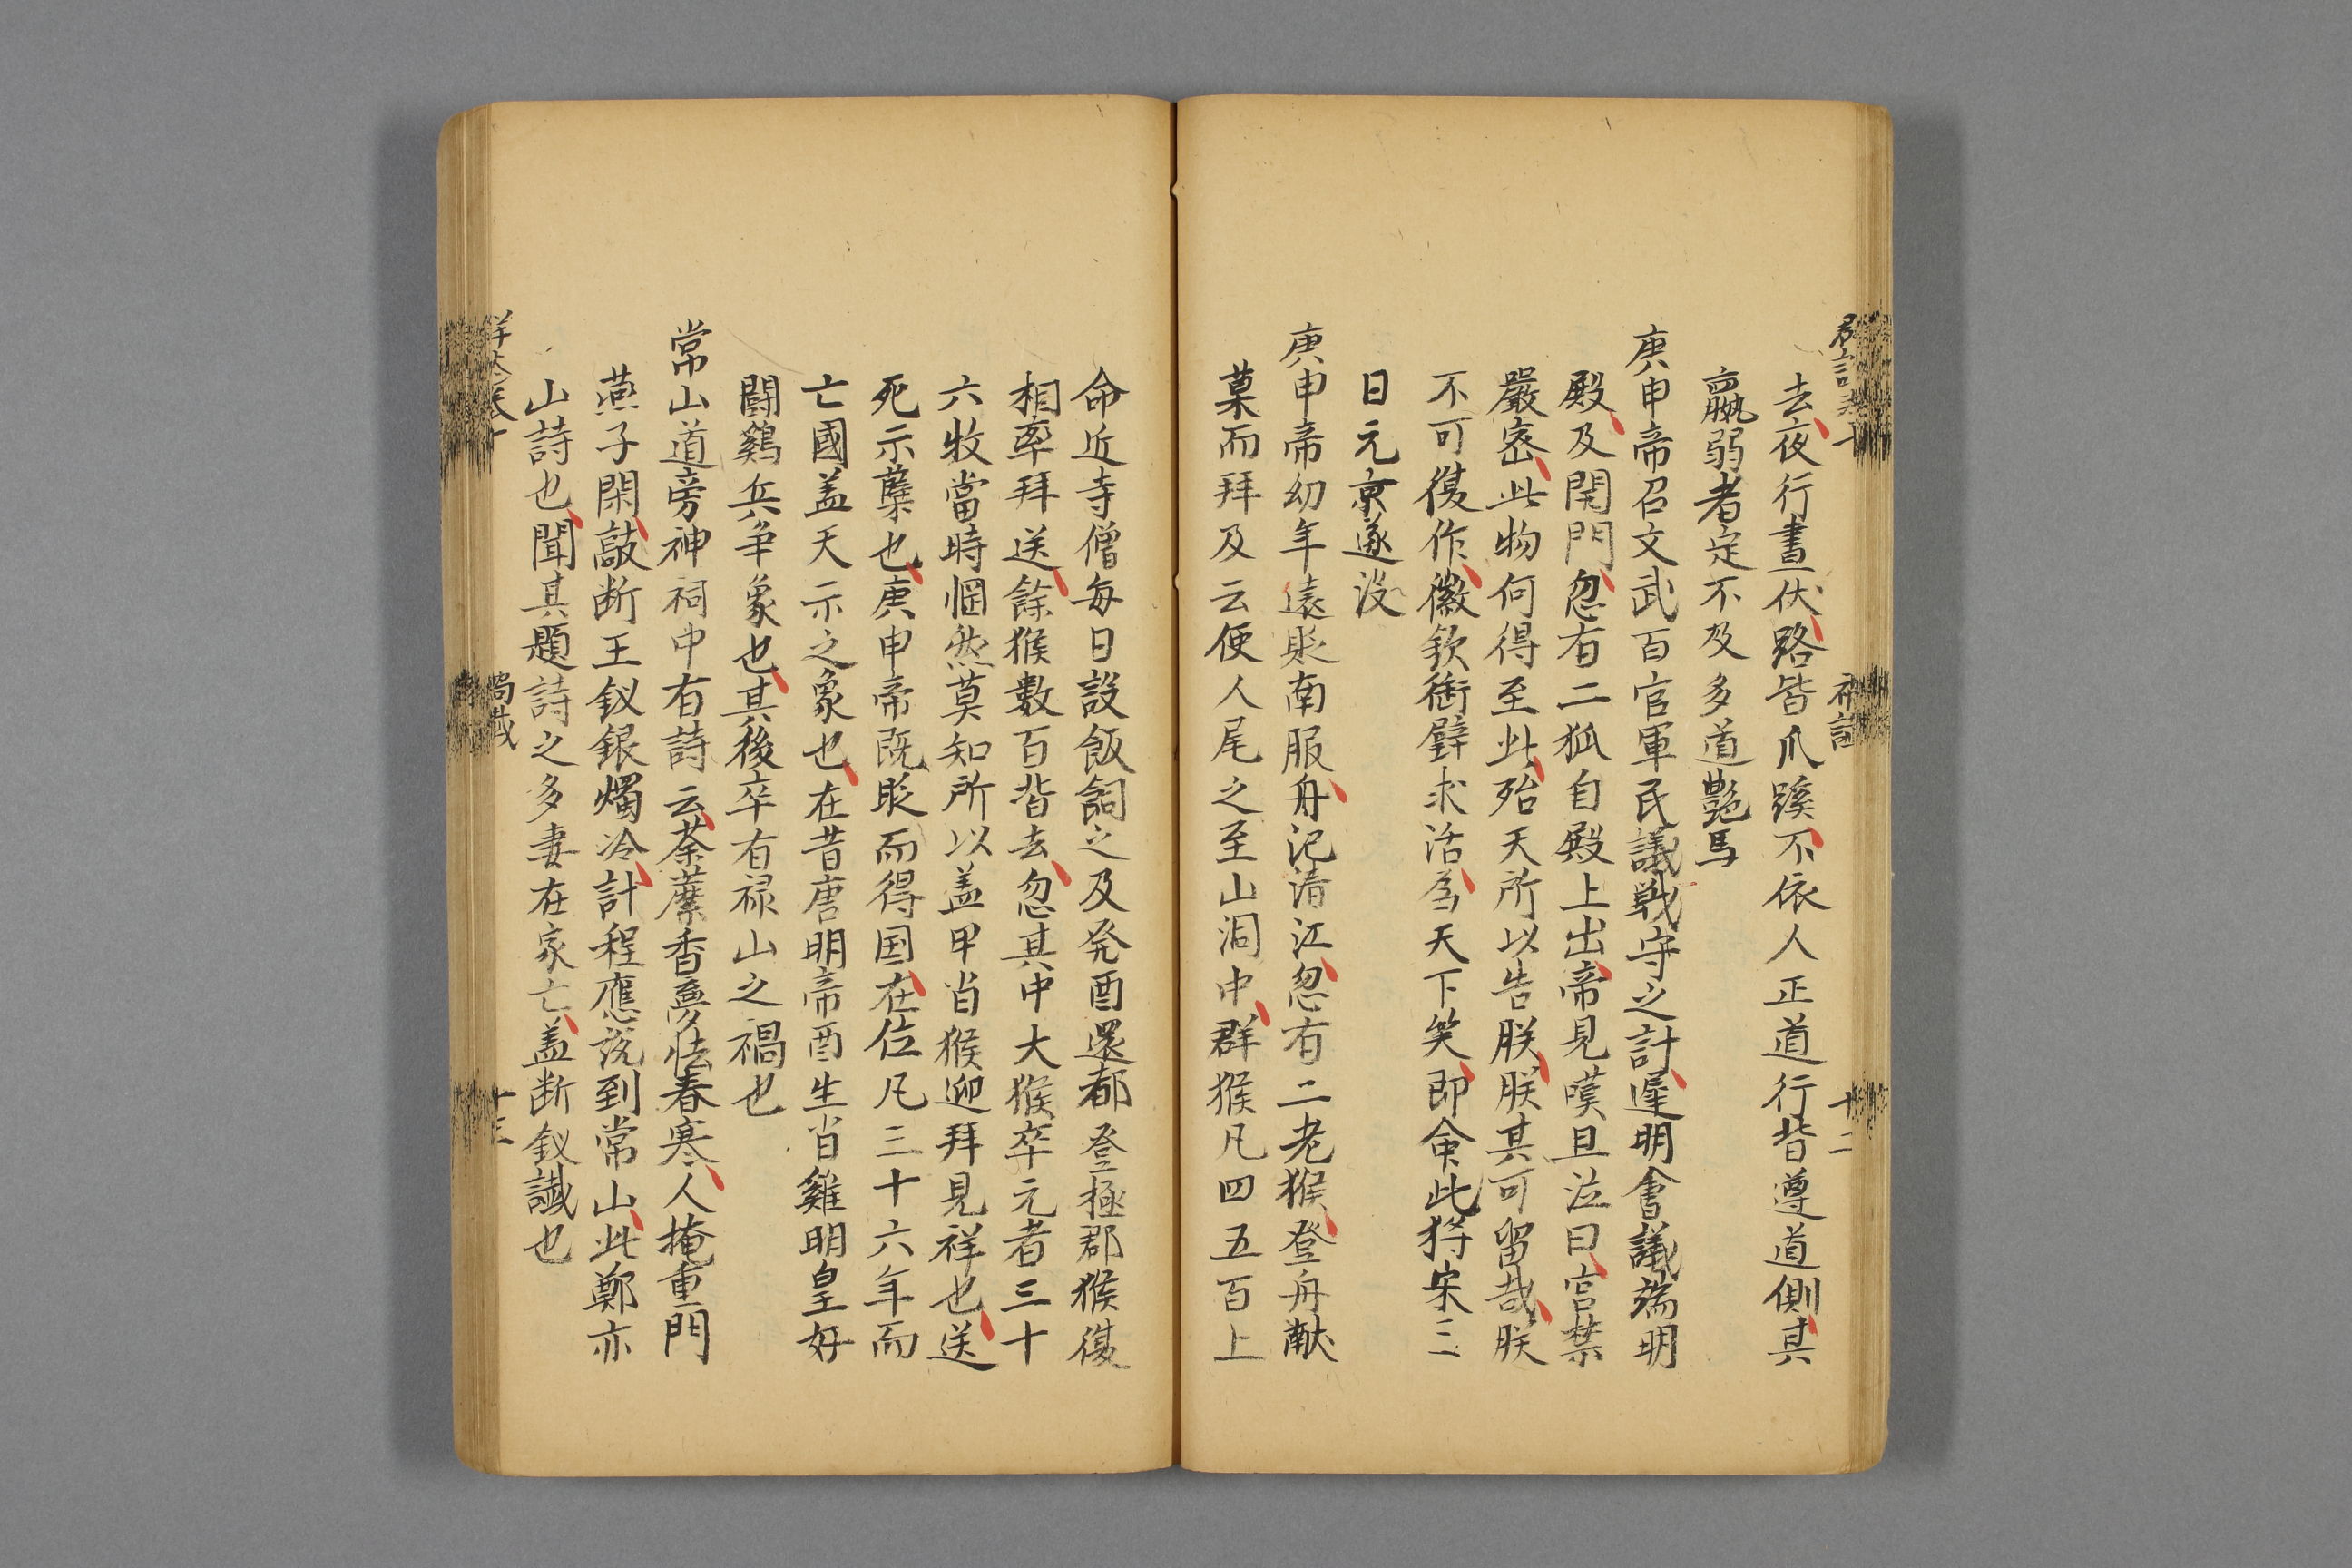 去夜行晝伏路皆爪蹊不依人正道行皆遵道側其
羸弱者定不及多道斃焉
庚申帝召文武百官軍民議戦守之計遅明會議端明
殿及開門忽有二狐自殿上出帝見嘆且泣曰宮禁
嚴密此物何得至此殆天所以告朕朕其可留哉朕
不可復作徽欽銜璧求活為天下笑即命此狩宋三
日元京遂没
庚申帝幼年遠貶南服舟汜清江忽有二老猴登舟献
菓而拜及云便人尾之至山洞中群猴凡四五百上
命近寺僧每日設飯飼之及癸酉還都登極郡猴復
相率拜送餘猴數百皆去忽其中大猴卒元者三十
六牧當時惘然莫知所以盖甲肖猴迎拜見祥也送
死示蘖也庚申帝既貶而得国在位凡三十六年而
亡國盖天示之象也在昔唐明帝酉生肖雞明皇好
闘鷄兵争象也其後卒有禄山之禍也
常山道旁神祠中有詩云荼蘼香夢怯春寒人掩重門
燕子閑敲断玉釵銀燭冷計程應說到常山此鄭亦
山詩也聞其題詩之多妻在家亡盖断釵讖也
十二
十三